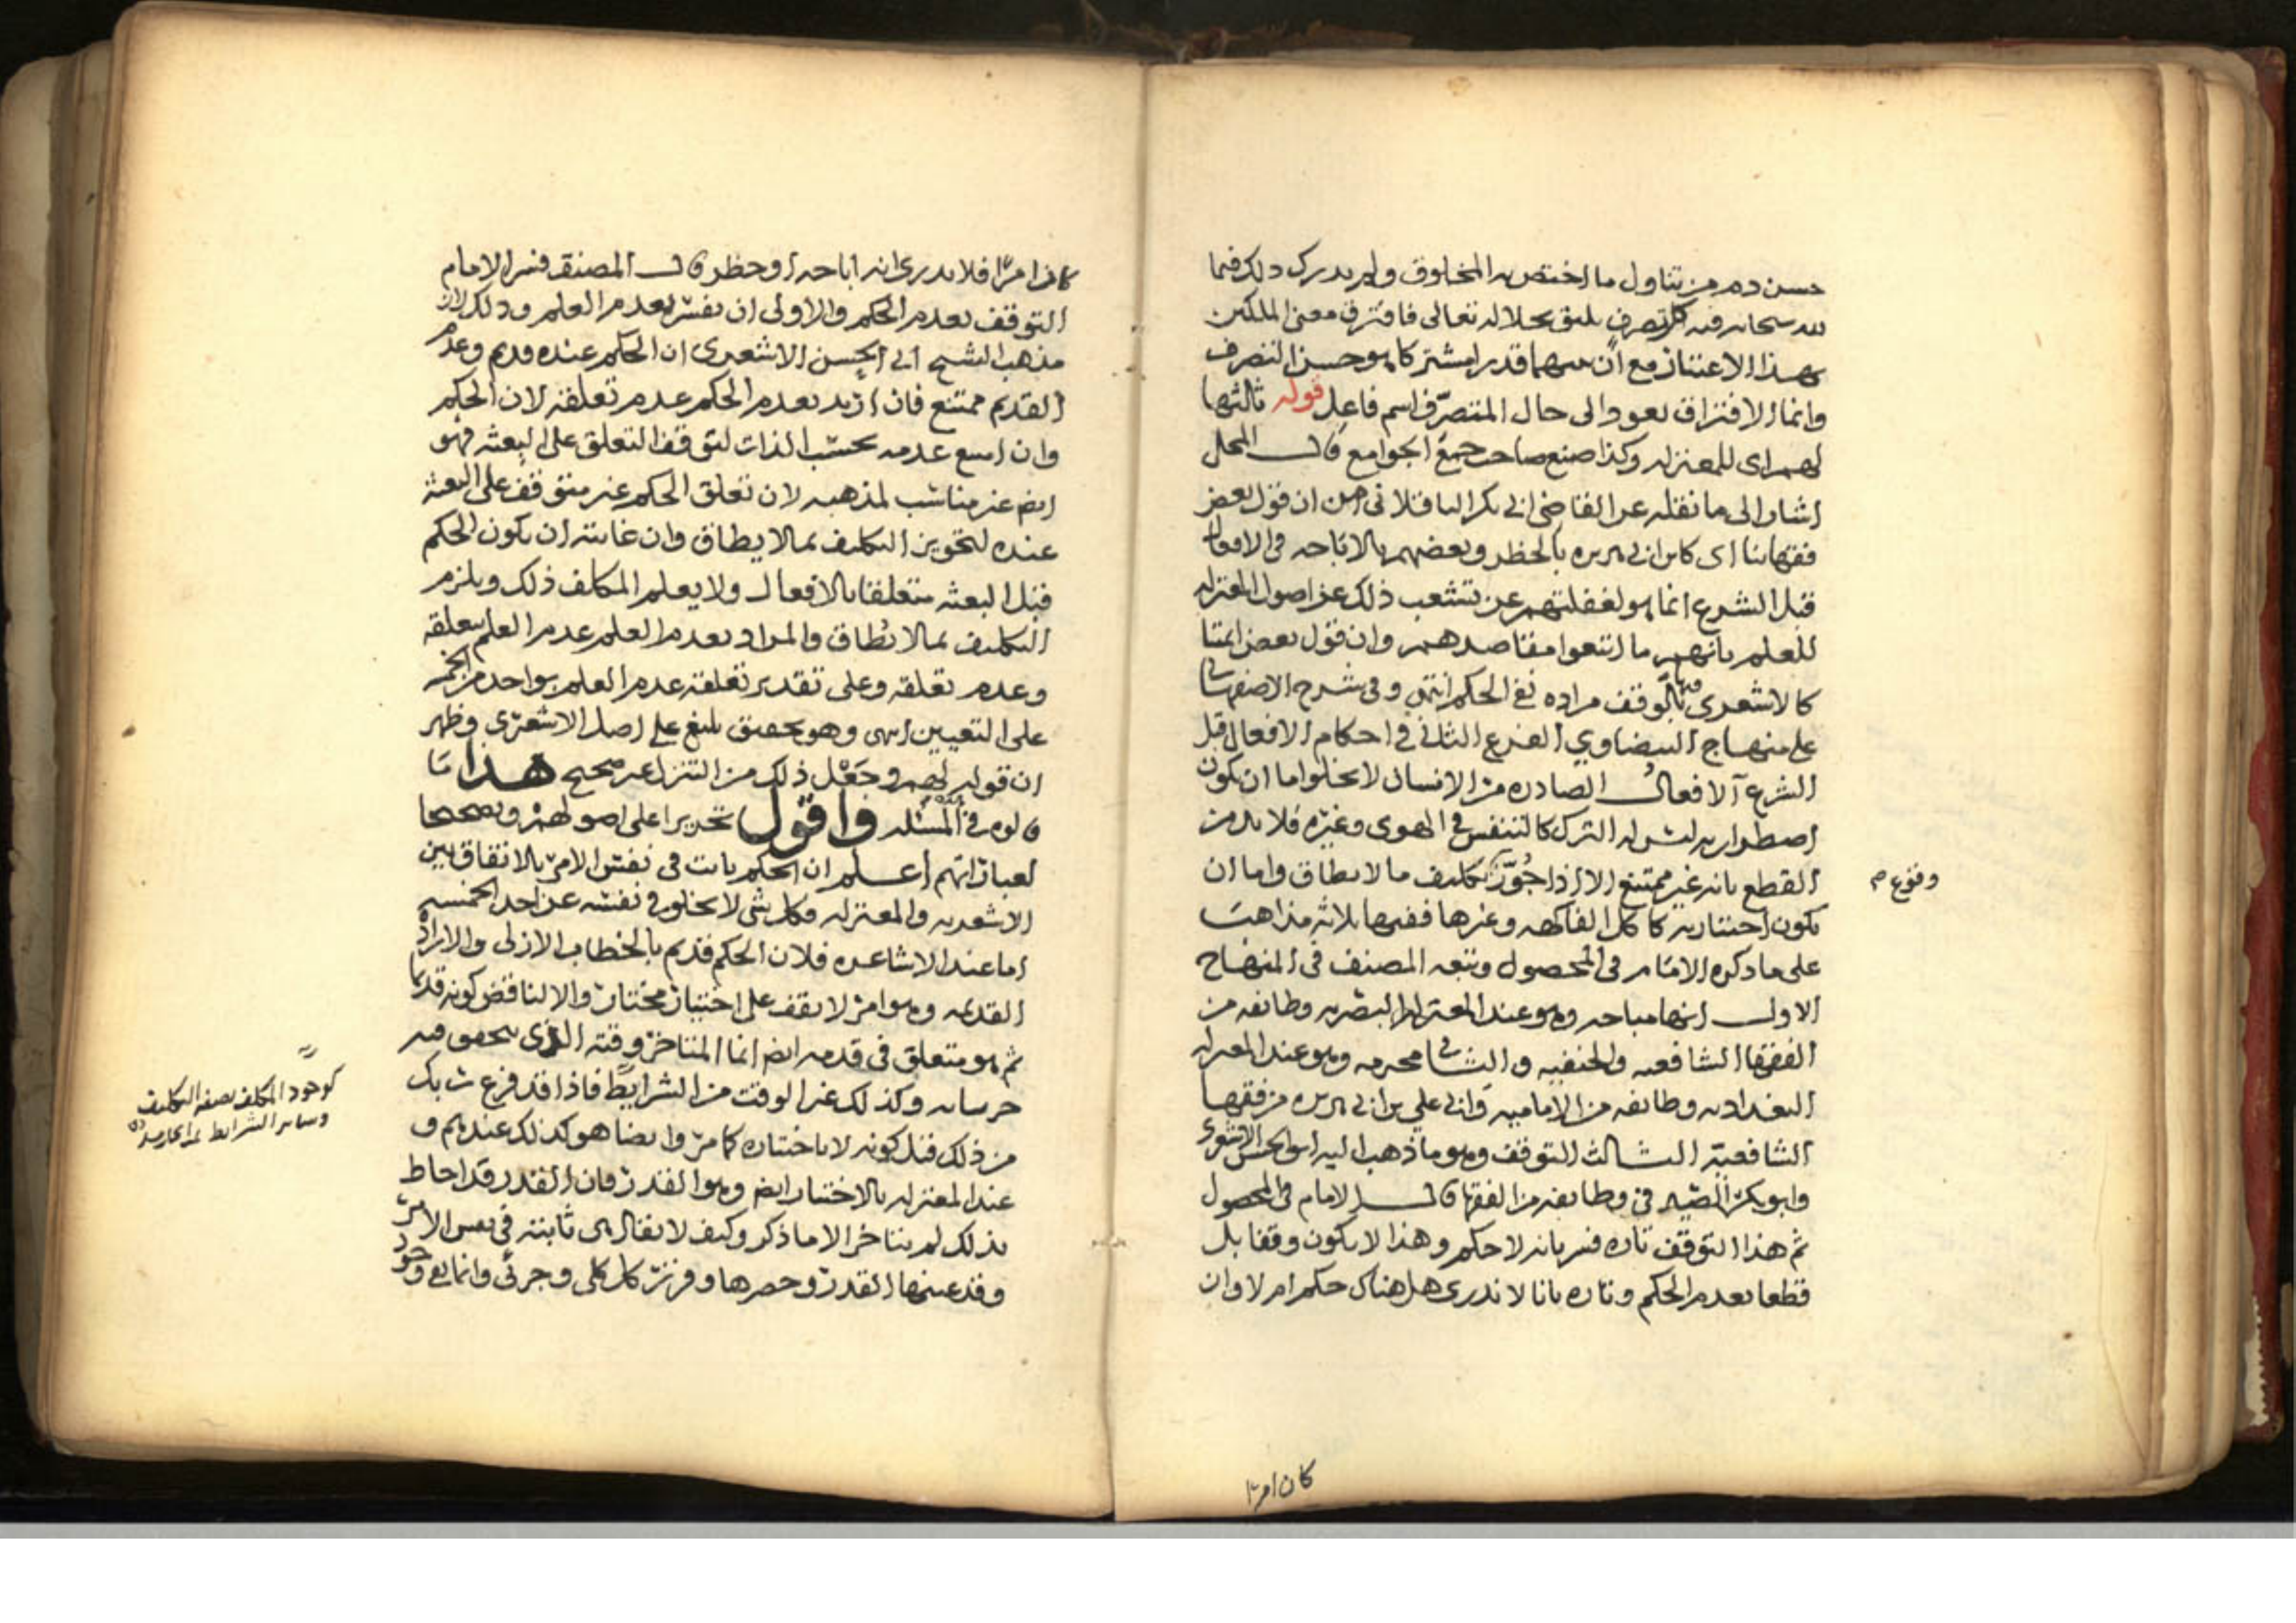 حسن دم من تناول ما اختص به المخلوق ولم يدرك ذلك فيما
لله سبحانه فيه كل تصرف يليق بجلاله تعالى فافترق معنى الملكين
بهذا الاعتبار مع أن بينهما قدرا مشتركا هو حسن التصرف
وانما الافتراق يعود الى حال المتصرّف اسم فاعل قوله ثالثها
لهم اى للمعتزله وكذا صنع صاحب جمع الجوامع قال المحلى
اشار الى ما نقله عن القاضى ابى بكر الباقلانى من ان قول بعض
فقهائنا اى كابن ابى هريره بالحظر وبعضهم بالاباحه فى الافعال
قبل الشرع انما هو لغفلتهم عن تشعب ذلك عن اصول المعتزله
للعلم بانهم ما اتبعوا مقاصدهم وان قول بعض ائمتنا
كالاشعرى بالوقف مراده نفى الحكم انتهى وفى شرح الاصفهانى
على منهاج البيضاوي الفرع الثانى فى احكام الافعال قبل
الشرع الافعال الصادره من الانسان لا يخلوا اما ان يكون
اضطراريه ليس له الترك كالتنفس فى الهوى وغيره فلا بد من
القطع بانه غير ممتنع الا اذا جُوّز تكليف ما لا يطاق واما ان
يكون اختياريه كاكل الفاكهه وغيرها ففيها ثلاثه مذاهب
على ما ذكره الامام فى المحصول وتبعه المصنف فى المنهاج
الاول انها مباحه وهو عند المعتزله البصريه وطائفه من
الفقها الشافعيه والحنفيه والثانى محرمه وهو عند المعتزله
البغداديه وطائفه من الاماميه وابى علي بن ابى هريره من فقها
الشافعيّة الثالث التوقف وهو ما ذهب اليه ابو الحسن الاشعرى
وابو بكر الصيرفى وطائفه من الفقها قال الامام فى المحصول
ثم هذا التوقف تاره فسر بانه لا حكم وهذا لا يكون وقفا بل
قطعا بعدم الحكم وتاره بانا لا ندرى هل هناك حكم ام لا وان
وقوع م
كان امرا
كان امرا فلا يدرى انه اباحه او حظر قال المصنف فسر الامام
التوقف بعدم الحكم والاولى ان يفسّر بعدم العلم وذلك لان
مذهب الشيخ ابى الحسن الاشعرى ان الحكم عنده قديم وعدم
القديم ممتنع فان اريد بعدم الحكم عدم تعلقه لان الحكم
وان امتنع عدمه بحسب الذات لتوقف التعلق على البعثه فهو
ايضا غير مناسب لمذهبه لان تعلق الحكم غير متوقف على البعثه
عنده لتجويز التكليف بما لا يطاق وان غايته ان يكون الحكم
قبل البعثه متعلقا بالافعال ولا يعلم المكلف ذلك ويلزم
التكليف بما لا يُطاق والمراد بعدم العلم عدم العلم بتعلقه
وعدم تعلقه وعلى تقدير تعلقه عدم العلم بواحد من الخمسه
على التعيين انتهى وهو تحقيق بليغ على اصل الاشعرى وظهر
ان قوله لهم وجَعْل ذلك من التنزل غير صحيح هذا ما
قالوه فى المسئله فاقول تحريرا على اصولهم وتصحيحا
لعباراتهم اعلم ان الحكم ثابت فى نفس الامر بالاتفاق بين
الاشعريه والمعتزله فكل شى لا يخلو فى نفسه عن احد الخمسه
اما عند الاشاعره فلان الحكم قديم بالخطاب الازلى والاراده
القديمه وهو امر لا يقف على اختيار مختار والا لناقض كونه قديما
ثم هو متعلق فى قدمه ايضا انما المتاخر وقته الذى يتحقق فيه
جريانه وكذلك غير الوقت من الشرايط فاذا قد فرغ ربك
من ذلك قبل كونه لا باختياره كما مرّ وايضا هو كذلك عندهم و
عند المعتزله بالاختيار ايضا وهو القدر فان القدر قد احاط
بذلك لم يتاخر الا ما ذكر وكيف لا يقال هى ثابته فى نفس الامر
وقد عينها القدر وحصرها وفرز كل كلى وجزئى وانما بقى وجود
كوجود المكلف بصفه التكليف
وسائر الشرائط